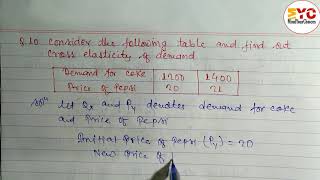 EYC
Q.10 consider the following table and find out
cross elasticity of demand
Demand for coke 1200 1400
Price of Pepsi 20 21
Solⁿ Let Qx and Py denotes demand for coke
and Price of Pepsi
Initial Price of Pepsi (Py) = 20
New Price of